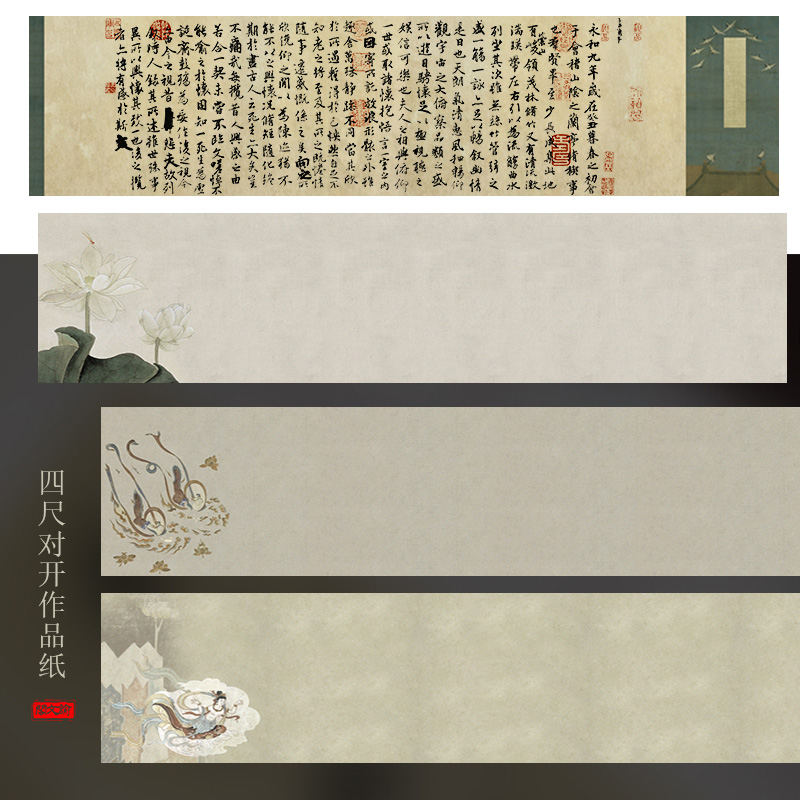 永和九年歲在癸丑暮春之初會
于會稽山陰之蘭亭脩稧事
也羣賢畢至少長咸集此地
有崇山峻領茂林脩竹又有清流激
湍暎帶左右引以為流觴曲水
列坐其次雖無絲竹管弦之
盛一觴一詠亦足以暢敘幽情
是日也天朗氣清惠風和暢仰
觀宇宙之大俯察品類之盛
所以遊目騁懷足以極視聽之
娛信可樂也夫人之相與俯仰
一世或取諸懷抱悟言一室之內
或因寄所託放浪形骸之外雖
趣舍萬殊靜躁不同當其欣
於所遇暫得於己快然自足不
知老之將至及其所之既惓情
隨事遷感慨係之矣向之所
欣俛仰之閒以為陳迹猶不
能不以之興懷況脩短隨化終
期於盡古人云死生亦大矣豈
不痛哉每攬昔人興感之由
若合一契未嘗不臨文嗟悼不
能喻之於懷固知一死生為虛
誕齊彭殤為妄作後之視今
亦由今之視昔悲夫故列
敘時人錄其所述雖世殊事
異所以興懷其致一也後之攬
者亦將有感於斯
四尺对开作品纸